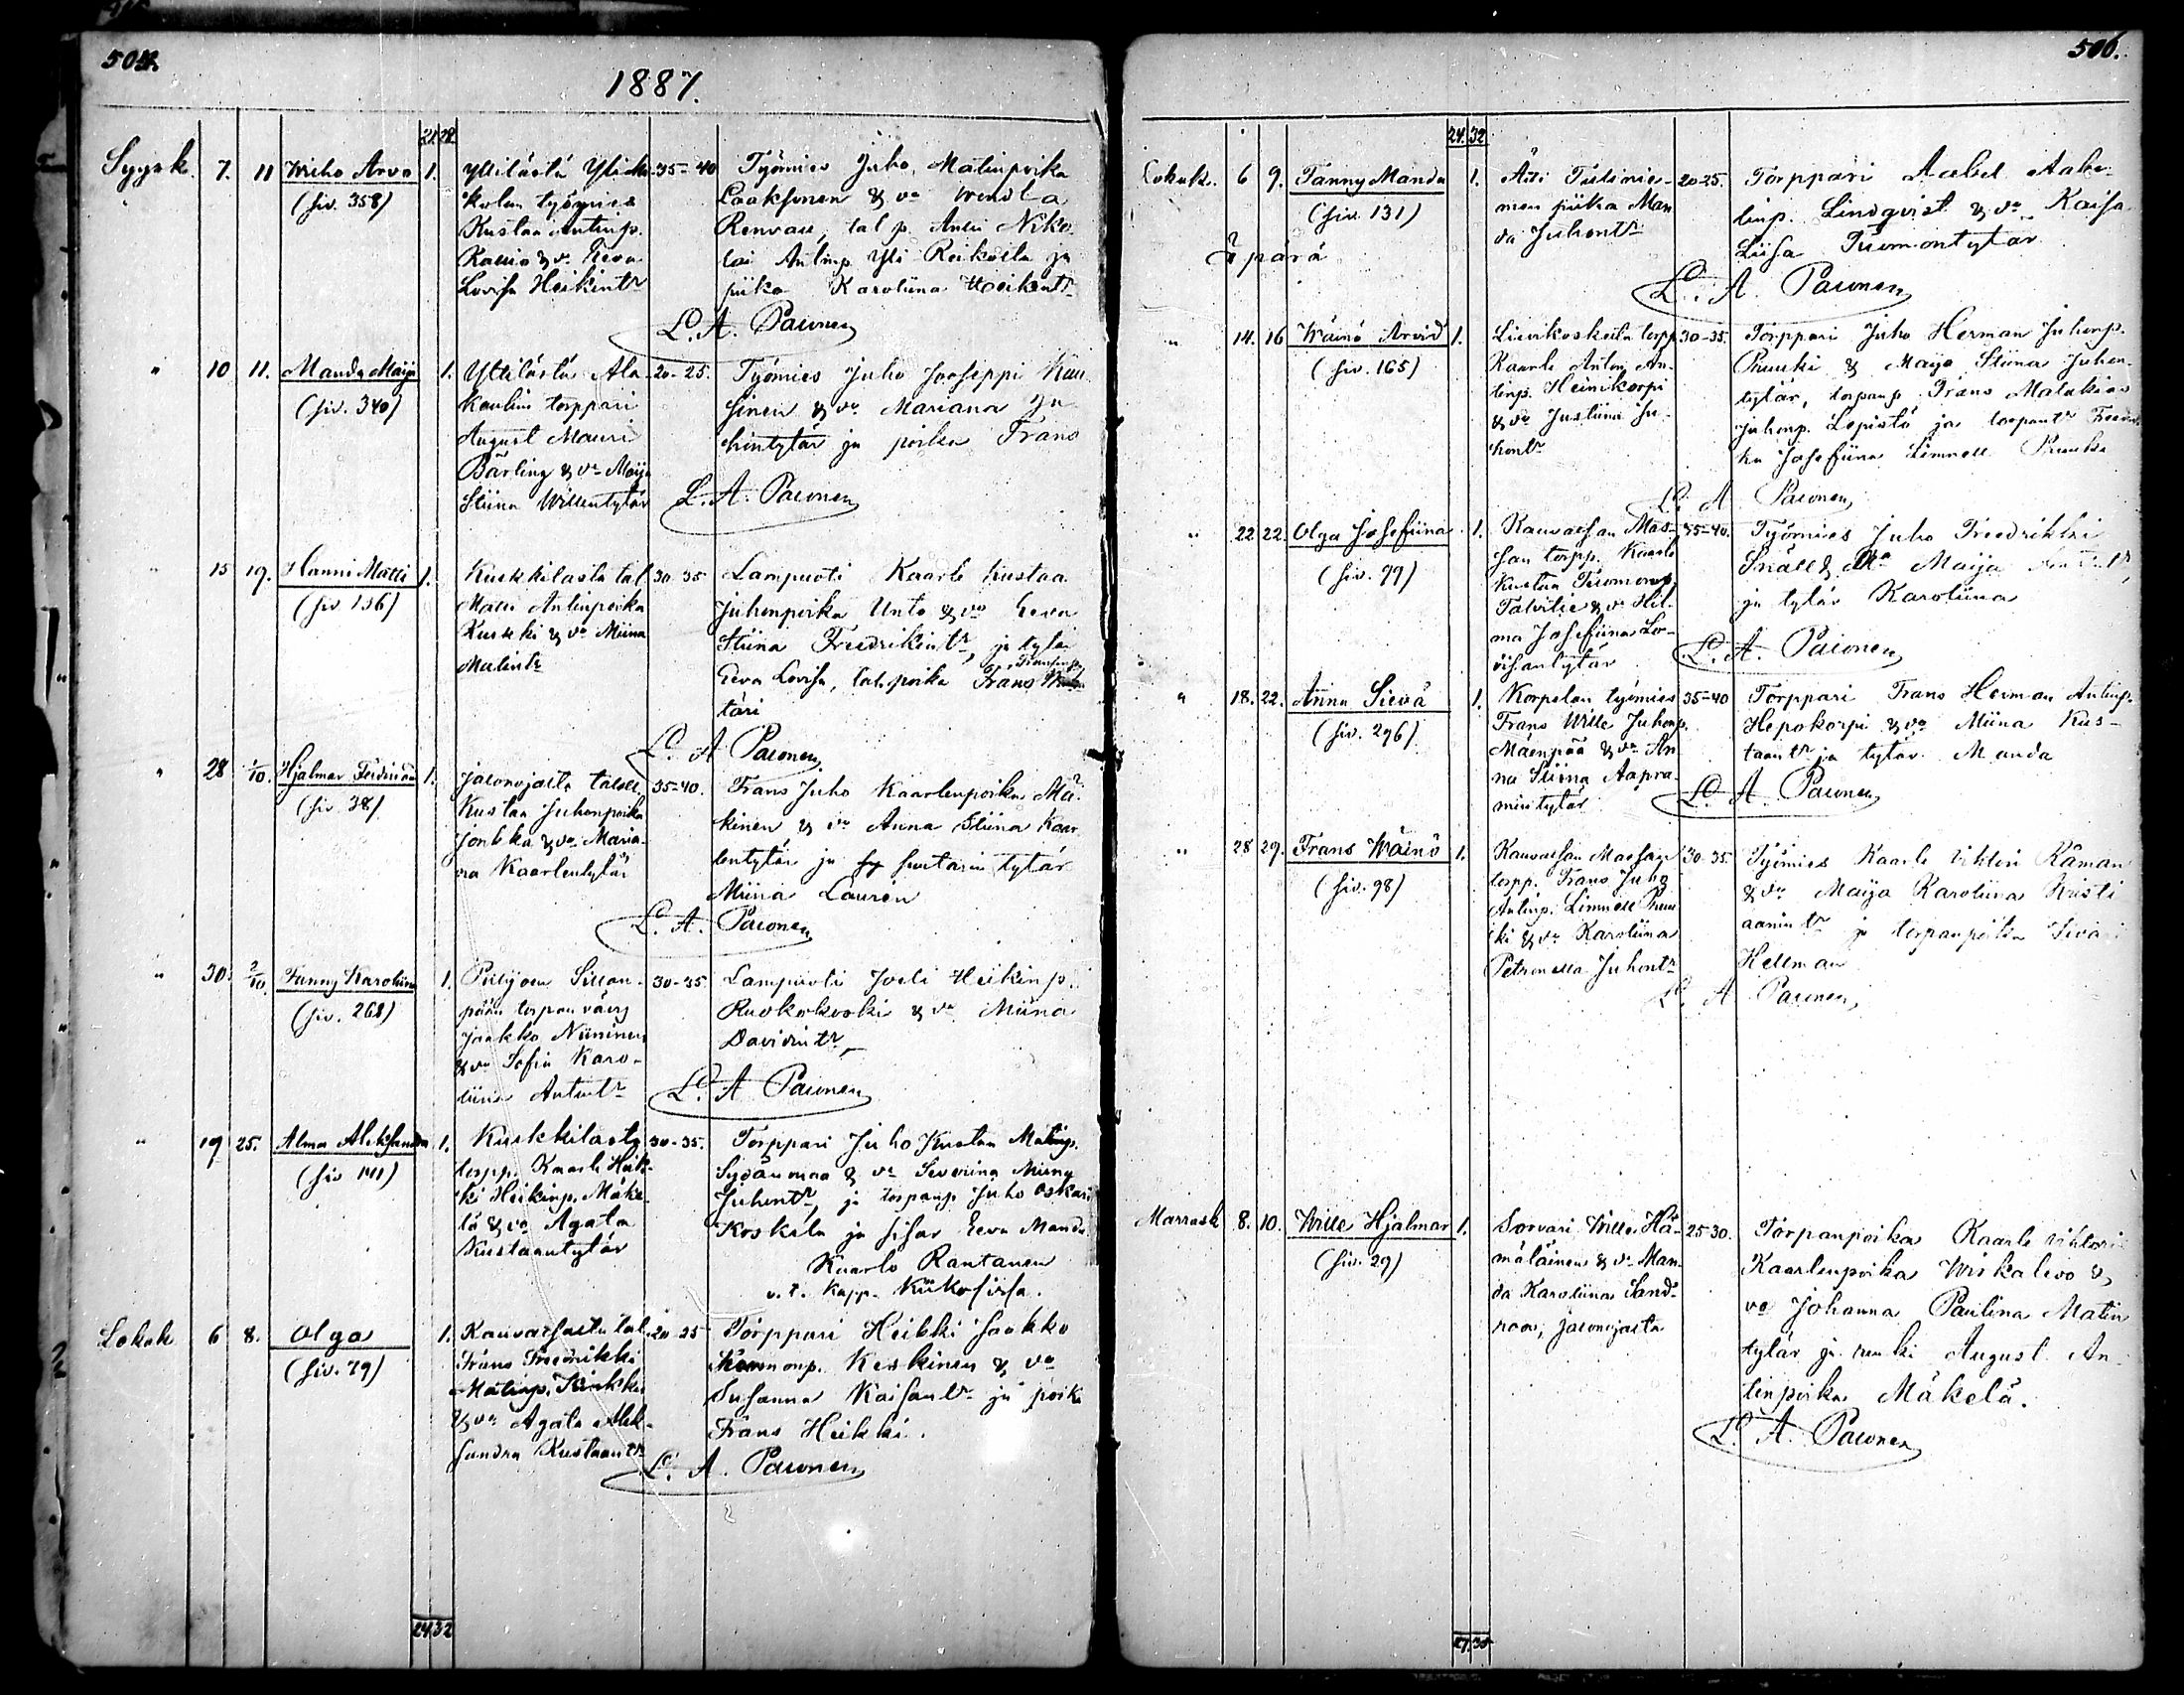 505.
1887.
21. 28
Syysk. 7. 11 Wiho Arvo 1. Yttilästä Yli-
(siv. 358)
kolun työmies
Kustaa Antinp.
Kallio & vo Eeva
Lovisa Heikintr
35-40 Työmies Juho Matinpoika
Laaksonen & vo Wendla
Renvall, tal. p. Antti Niko-
lai Antinp. Yli Reikoila ja
piika Karoliina Heikintr
L. A. Paconen
" 10 11. Manda Maija 1. Yttilästä Ala-
(siv. 340)
kaulun torppari
August Mauri
Bärling & vo Maija
Stiina Willentytär
20-25. Työmies Juho Jooseppi
sinen & vo Mariana Ju-
hontytär ja poika Frans
L. A. Paconen
" 15 19. Hanni Matti 1. Kuskkilasta tal.
(siv. 136)
Matti Antinpoika
Kuskki & vo Miina
Matintr
30-35 Lampuoti Kaarle Kustaa
Juhonpoika Unto & vo Eeva
Stiina Fredrikintr, ja tytär
Eeva Lovisa, tal. poika Frans
täri
L. A. Paconen
" 28 1/10. Hjalmar Ferdinand 1. Jalonojalta taloll.
(siv. 38)
Kustaa Juhonpoika
Jonkka & vo Maria-
na Kaarlentytär
35-40. Frans Juho Kaarlenpoika Mä-
kinen & vo Anna Stiina Kaar-
lentytär ja suutarin tytär
Miina Laurén
L. A. Paconen
" 30. 2/10. Fanny Karoliina 1. Pilijoen Sillan-
(siv. 268)
pään torpan vävy
Jaakko Niininen
& vo Sofia Karo-
liina Antintr
30-35. Lampuoti Joeli Heikinp.
Ruokokoski & vo Miina
Davidintr
L. A. Paconen
" 19 25. Alma Aleksandra 1. Kuskkilasta
(siv 141)
torpp. Kaarle Heik-
ki Heikinp. Mäke-
lä & vo Agata
Kustaantytär
30-35. Torppari Juho Kustaa Matinp.
Sydänmaa & vo Severiina Miina
Juhontr, ja torpanp. Juho Oskari
Koskela ja sisar Eeva Manda
Kaarlo Rantanen
v. t. Kapp. Kiikoisissa.
Lokak 6 8. Olga 1. Kauvatsasta tal.
(siv. 79)
Frans Fredrikki
Matinp.
& vo Agata Alek-
sandra Kustaantr
20-25 Torppari Heikki Jaakko
Keskinen & vo
Susanna Kaisantr ja poika
Frans Heikki.
L. A. Paconen
24 32
506.
24. 32
Lokak. 6 9. Fanny Manda 1. Äiti
(siv. 131)
Äpärä
men piika Man-
da Juhontr
20-25. Torppari Aabel Aabe-
linp. Lindqvist & vo Kaisa
Liisa Tuomontytär
L. A. Paconen
" 14. 16 Wäinö Arvid 1. Lievikoskelta torpp.
(siv. 165)
Kaarle Anton An-
tinp. Heinikorpi
& vo Justiina Ju-
hontr
30-35. Torppari Juho Herman Juhonp.
Ruuki & Maija Stiina Juhon-
tytär, torpanp. Frans Malakias
Juhonp. Lepistö ja torpantr Fredri-
ka Josefiina Limnell Ruuki
L. A. Paconen
" 22 22. Olga Josefiina 1. Kauvatsan Mas-
(siv. 99)
san torpp. Kaarle
Kustaa Tuomonp.
Talvitie & vo Hil-
ma Josefiina Lo-
visantytär
35-40. Työmies Juho Fredrikki
Snäll & vo Maija
ja tytär Karoliina
L. A. Paconen
" 18. 22. Anna Sievä 1. Korpelan työmies
(siv. 296)
Frans Wille Juhonp.
Mäenpää & vo An-
na Stiina Aapra-
mintytär
35-40 Torppari Frans Herman Antinp.
Hepokorpi & vo Miina Kus-
taantr ja tytär Manda
L. A. Paconen
" 28 29. Frans Wäinö 1. Kauvatsan Massan
(siv. 98)
torpp. Frans Juho
Antinp. Limnell Ruu-
ki & vo Karoliina
Petronella Juhontr
30-35. Työmies Kaarle Viktori Råman
& vo Maija Karoliina Kristi-
aanintr ja torpanpoika
Hellman
L. A. Paconen
Marrask 8. 10. Wille Hjalmar 1. Sorvari Wille Hä-
(siv. 29)
mäläinen & vo Man-
da Karoliina Sand-
roos, Jalonojasta
25-30. Torpanpoika Kaarle Viktori
Kaarlenpoika Wiskalevo &
vo Johanna Pauliina Matin-
tytär ja renki August An-
tinpoika Mäkelä.
L. A. Paconen
27. 35